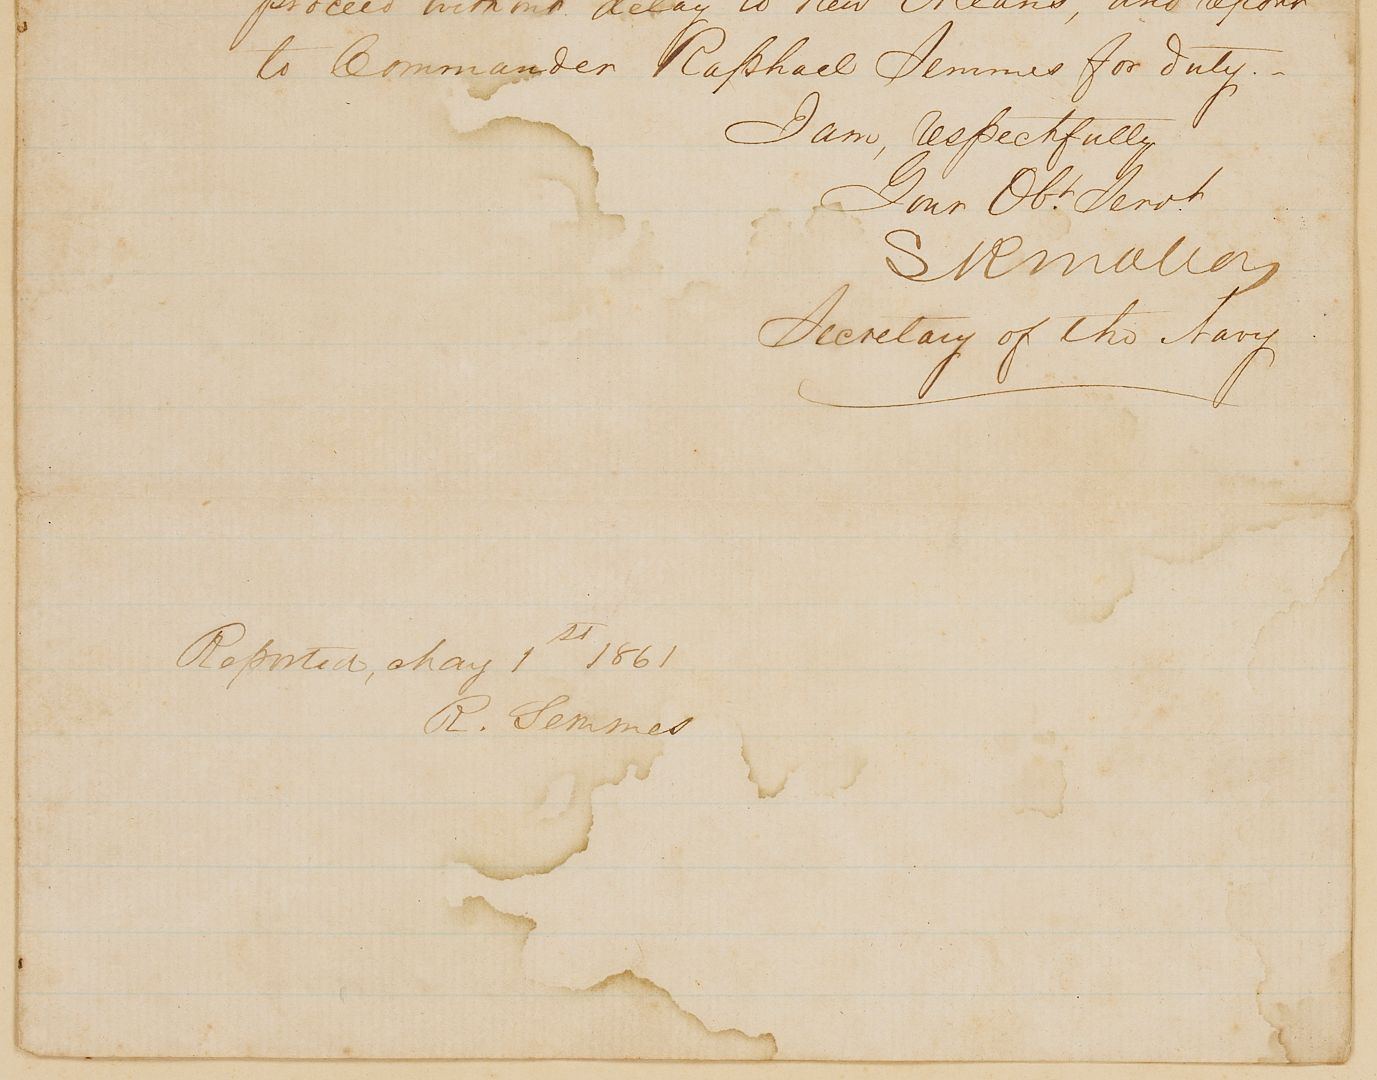 proceed without delay to New Orleans, and report
to Commander Raphael Semmes for duty.-
I am, respectfully
Your Obt. Servt
S R Mallory
Secretary of the Navy
Reported, May 1st 1861
R. Semmes